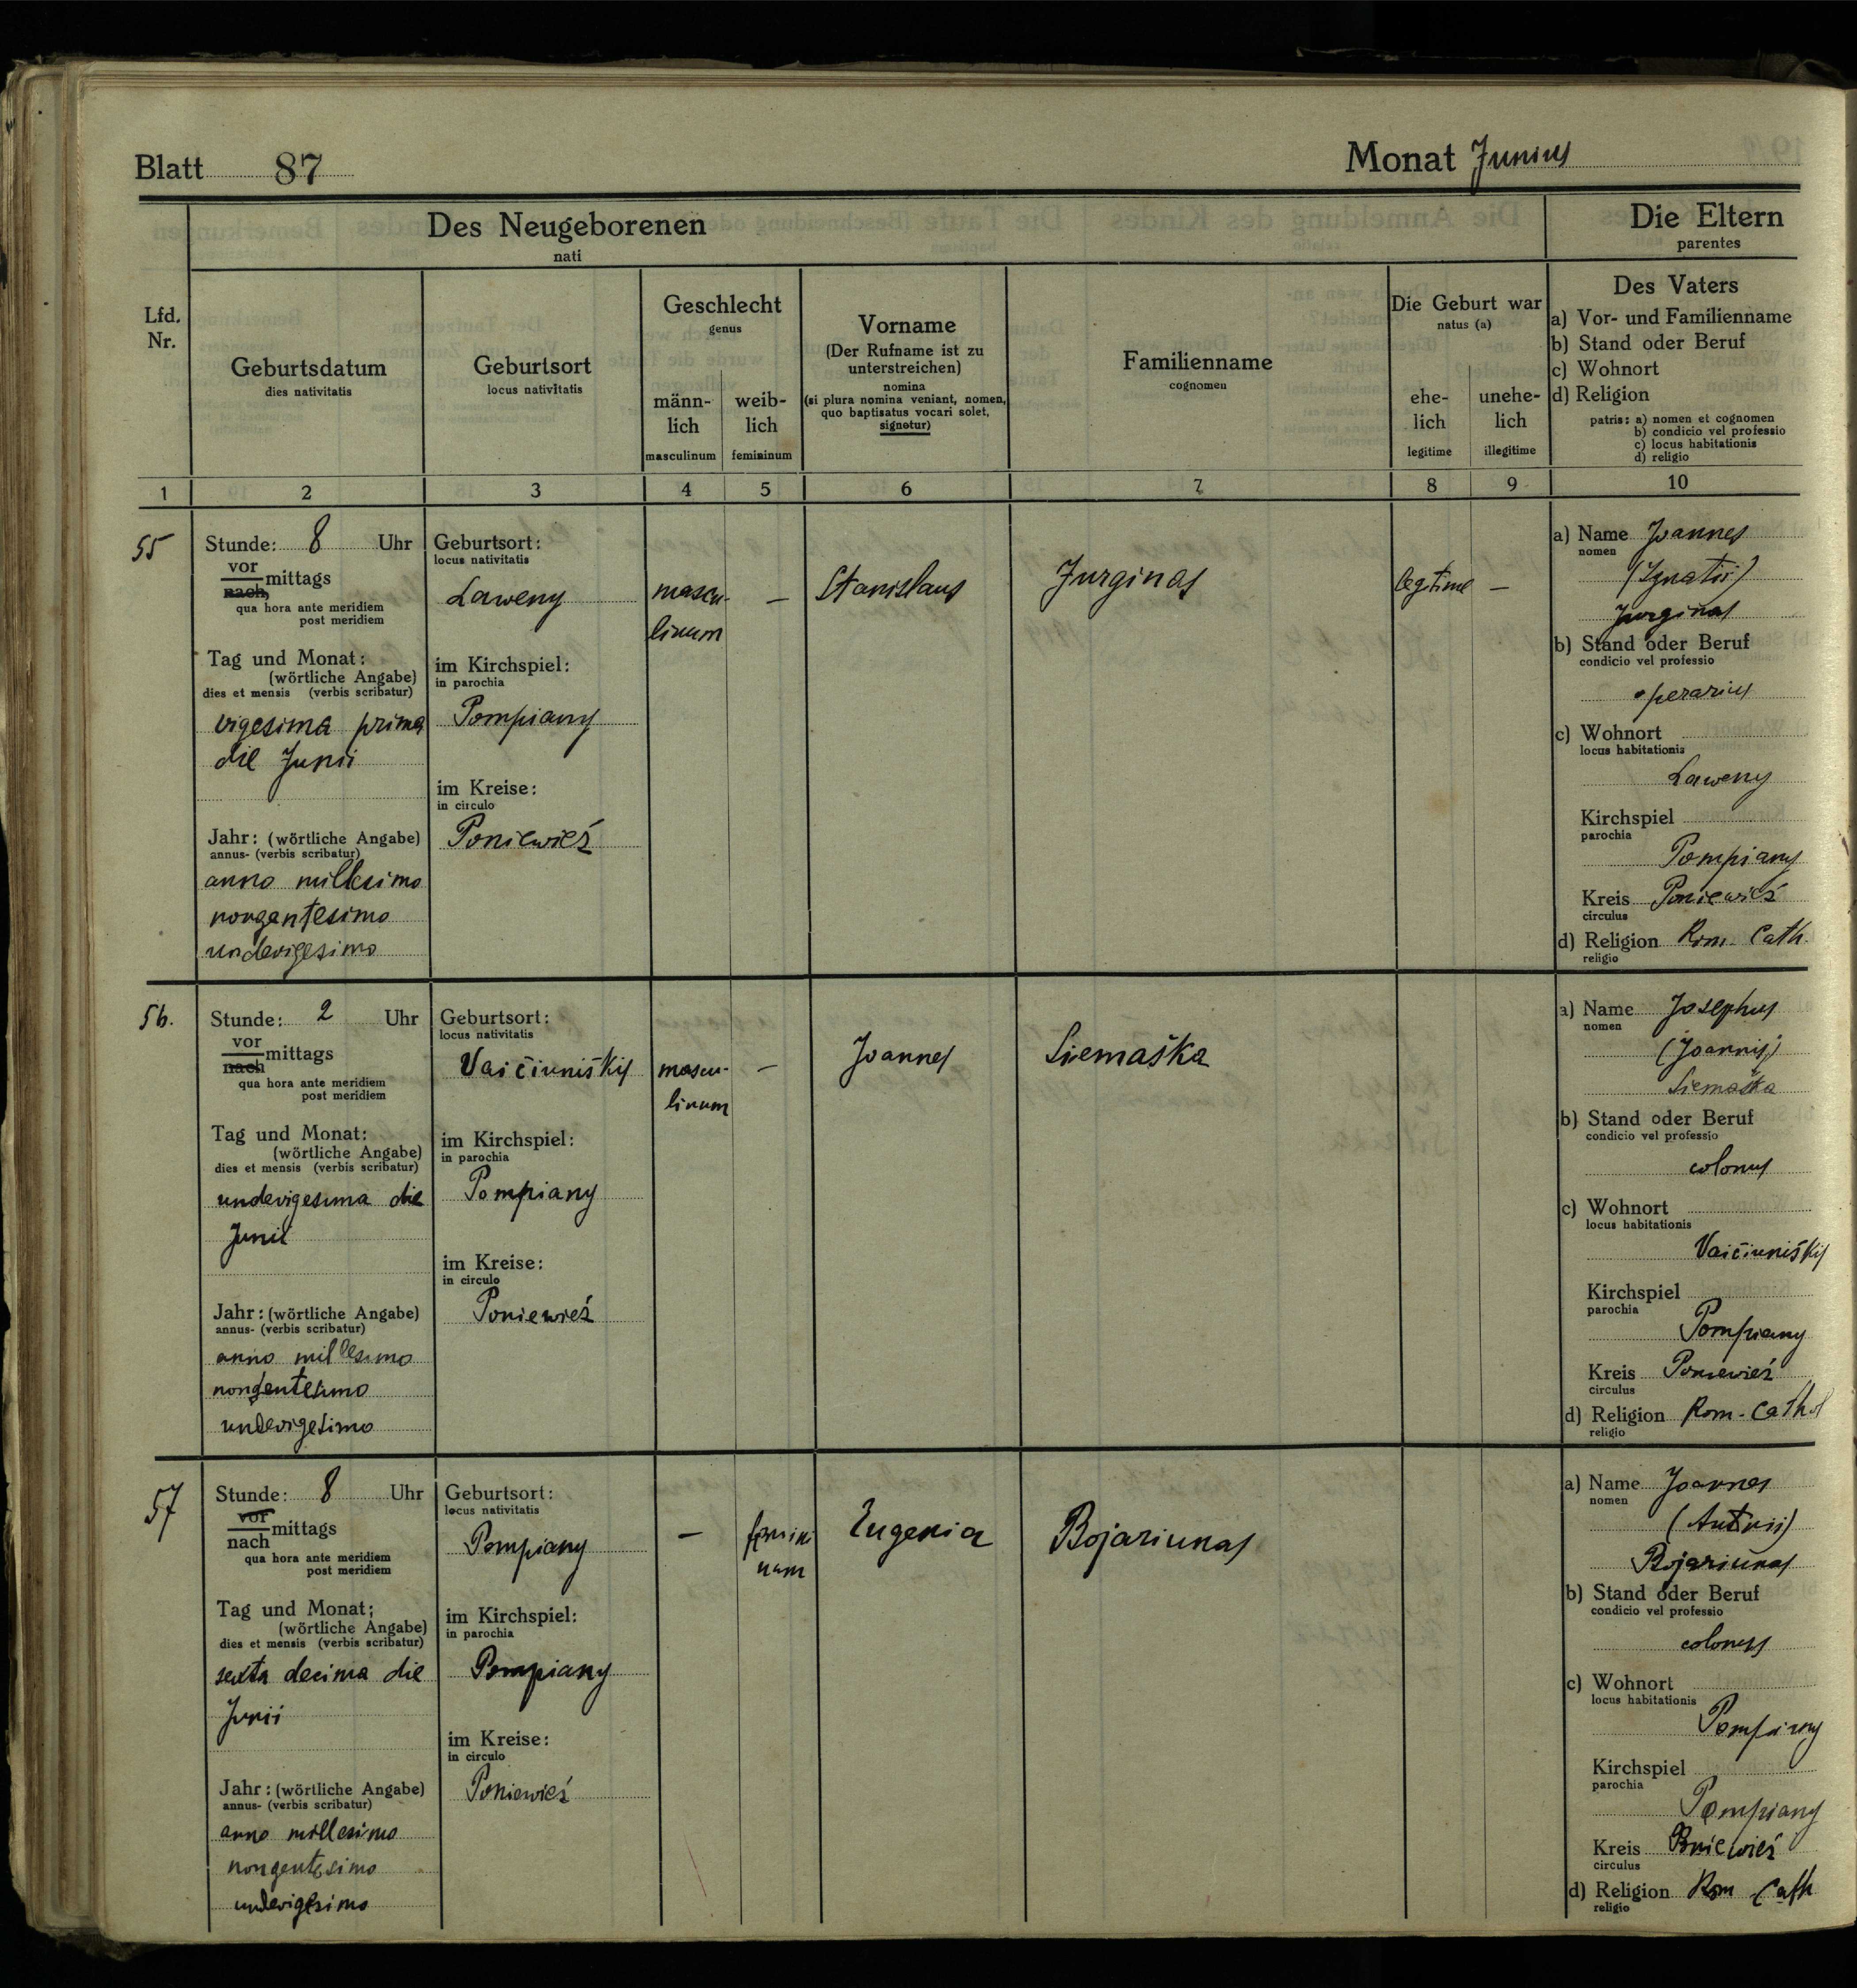 Blatt 87
Monat Junius
Des Neugeborenen
nati
Die Eltern
parentes
Lfd.
Nr.
Geburtsdatum
dies nativitatis
Geburtsort
locus nativitatis
Geschlecht
genus
männ-
lich
masculinum
weib-
lich
femininum
Vorname
(Der Rufname ist zu
unterstreichen)
nomina
(si plura nomina veniant, nomen,
quo baptisatus vocari solet,
signetur)
Familienname
cognomen
Die Geburt war
natus (a)
ehe-
lich
legitime
unehe-
lich
illegitime
Des Vaters
a) Vor- und Familienname
b) Stand oder Beruf
c) Wohnort
d) Religion
patris: a) nomen et cognomen
b) condicio vel professio
c) locus habitationis
d) religio
1 2 3 4 5 6 7 8 9 10
55
Stunde: 8 Uhr
vor
nach, mittags
qua hora ante meridiem
post meridiem
Tag und Monat:
(wörtliche Angabe)
dies et mensis (verbis scribatur)
vigesima prima
die Junii
Jahr: (wörtliche Angabe)
annus- (verbis scribatur)
anno millesimo
nongentesimo
undevigesimo
Geburtsort:
locus nativitatis
Laweny
im Kirchspiel:
in parochia
Pompiany
im Kreise:
in circulo
Poniewież
mascu-
linum
—
Stanislaus
Jurginas
legtime
—
a) Name Joannes
nomen
(Ignatii)
Jurginas
b) Stand oder Beruf
condicio vel professio
operarius
c) Wohnort
locus habitationis
Laweny
Kirchspiel
parochia
Pompiany
Kreis Poniewież
circulus
d) Religion Rom. Cath.
religio
56.
Stunde: 2 Uhr
vor
nach mittags
qua hora ante meridiem
post meridiem
Tag und Monat:
(wörtliche Angabe)
dies et mensis (verbis scribatur)
undevigesima die
Junii
Jahr: (wörtliche Angabe)
annus- (verbis scribatur)
anno millesimo
nongentesimo
undevigesimo
Geburtsort:
locus nativitatis
Vaičiuniškis
im Kirchspiel:
in parochia
Pompiany
im Kreise:
in circulo
Poniewież
mascu-
linum
—
Joannes
Siemaška
a) Name Josephus
nomen
(Joannis)
Siemaška
b) Stand oder Beruf
condicio vel professio
colonus
c) Wohnort
locus habitationis
Vaičiuniškis
Kirchspiel
parochia
Pompiany
Kreis Poniewież
circulus
d) Religion Rom-Cathol
religio
57
Stunde: 8 Uhr
vor
nach mittags
qua hora ante meridiem
post meridiem
Tag und Monat;
(wörtliche Angabe)
dies et mensis (verbis scribatur)
sexta decima die
Junii
Jahr: (wörtliche Angabe)
annus- (verbis scribatur)
anno millesimo
nongentesimo
undevigesimo
Geburtsort:
locus nativitatis
Pompiany
im Kirchspiel:
in parochia
Pompiany
im Kreise:
in circulo
Poniewież
—
femini
num
Eugenia
Bojariunas
a) Name Joannes
nomen
(Antonii)
Bojariunas
b) Stand oder Beruf
condicio vel professio
colonus
c) Wohnort
locus habitationis
Pompiany
Kirchspiel
parochia
Pompiany
Kreis Poniewież
circulus
d) Religion Rom Cath
religio